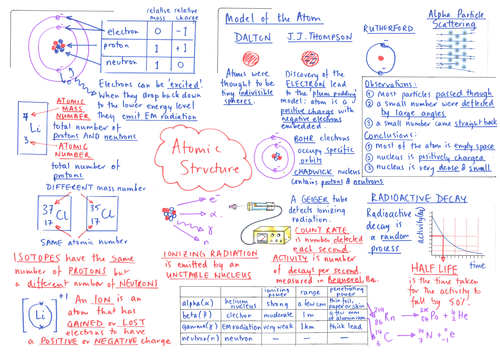 relative mass
relative charge
electron 0 -1
proton 1 +1
neutron 1 0
Electrons can be 'excited'.
When they drop back down
to the lower energy level
they emit EM radiation
ATOMIC
MASS
NUMBER
total number of
protons AND neutrons
Li
3
ATOMIC
NUMBER
total number of
protons
DIFFERENT mass number
37
Cl
17
35
Cl
17
SAME atomic number
ISOTOPES have the same
number of PROTONS but
a different number of NEUTRONS
Li
+1
An ION is an
atom that has
GAINED or LOST
electrons to have
a POSITIVE or NEGATIVE charge
Atomic
Structure
IONIZING RADIATION
is emitted by an
UNSTABLE NUCLEUS
e
α
γ
n
Model of the Atom
DALTON
Atoms were
thought to be
tiny indivisible
spheres.
J.J.THOMPSON
Discovery of the
ELECTRON lead
to the plum pudding
model: atom is a
positive charge with
negative electrons
embedded.
BOHR electrons
occupy specific
orbits
CHADWICK nucleus
contains protons & neutrons
RUTHERFORD
Alpha Particle
Scattering
Observations:
1 most particles passed through
2 a small number were deflected
by large angles
3 a small number came straight back
Conclusions:
1 most of the atom is empty space
2 nucleus is positively charged
3 nucleus is very dense & small
A GEIGER TUBE
detects ionizing
radiation.
COUNT RATE
is number detected
each second.
ACTIVITY is number
of decays per second.
measured in Bequerel, Bq.
RADIOACTIVE DECAY
Radioactive
decay is
a random
process
activity
time
HALF LIFE
is the time taken
for the activity to
fall by 50%.
ionising power
range
penetrating power
alpha (α) helium nucleus strong a few cm thin foil, paper or skin
beta (β) electron moderate 1m a few mm of aluminium
gamma (γ) EM radiation very weak 1km thick lead
neutron (n) neutron
219
Rn
86
Po
4
He
2
14
C
6
14
N
7
0
e
-1